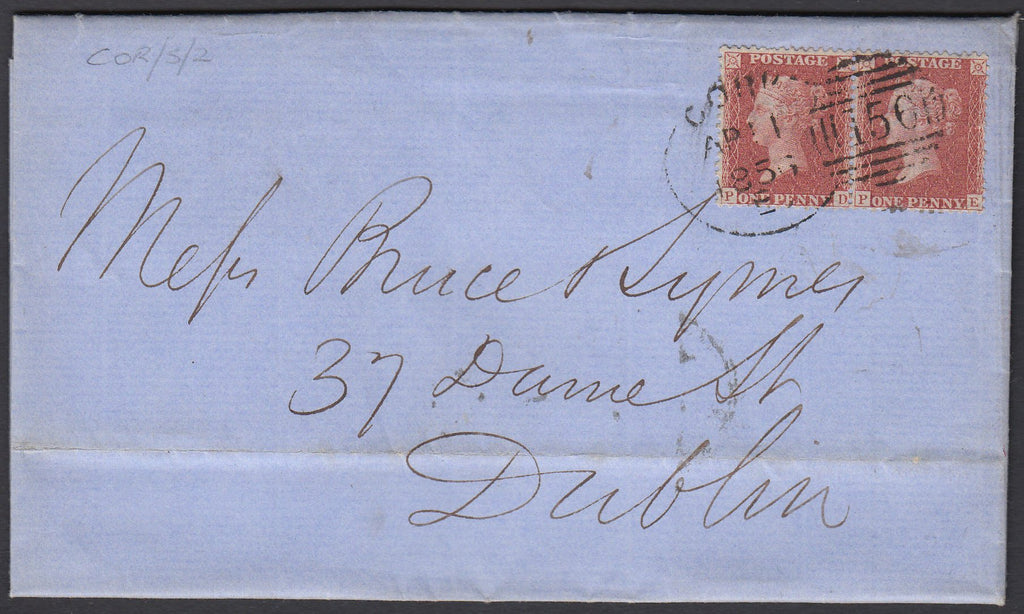 COR/S/2
POSTAGE POSTAGE
AP 1
1856
156
P ONE PENNY D P ONE PENNY E
Mess Bruce & Symes
37 Dame St
Dublin